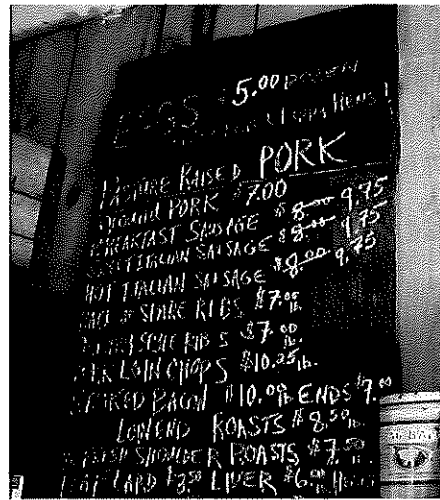 EGGS $5.00 DOZEN
HENS!
PASTURE RAISED PORK
GROUND PORK $7.00
BREAKFAST SAUSAGE $8.00 9.75
ITALIAN SAUSAGE $8.00 9.75
HOT ITALIAN SAUSAGE $8.00 9.75
SPARE RIBS $7.00 lb.
STYLE RIBS $7.00 lb.
PORK LOIN CHOPS $10.25 lb.
SMOKED BACON $10.00 lb ENDS $7.00
LOIN END ROASTS $8.50 lb.
SHOULDER ROASTS $7.50 lb.
LARD $3.50 LIVER $6.00